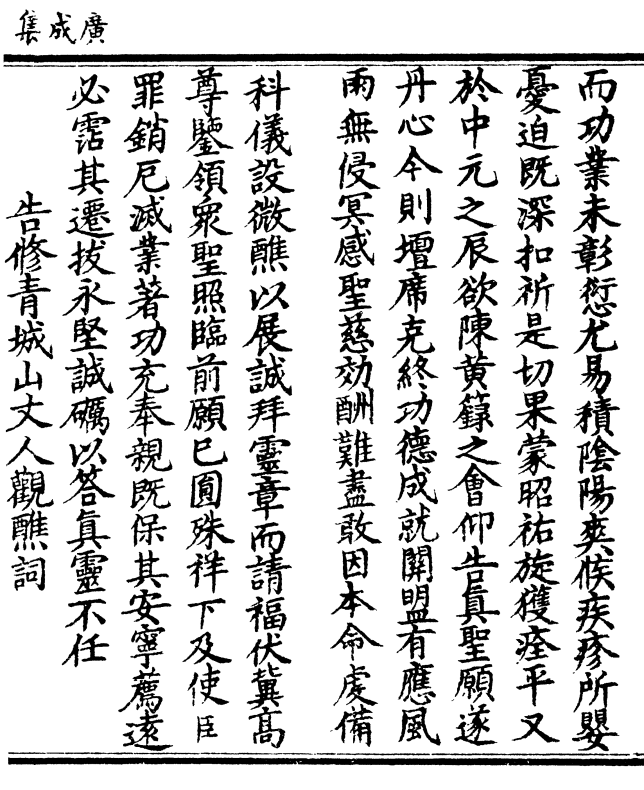 廣成集
而功業未彰愆尤易積陰陽爽候疾疹所嬰
憂迫既深扣祈是切果蒙昭祐旋獲痊平又
於中元之辰欲陳黄籙之會仰告真聖願遂
丹心今則壇席克終功德成就開盟有應風
雨無侵冥感聖慈効酬難盡敢因本命虔備
科儀設微醮以展誠拜靈章而請福伏冀高
尊鑒領衆聖照臨前願已圓殊祥下及使臣
罪銷厄滅業著功充奉親既保其安寧薦遠
必霑其遷拔永堅誠礪以答真靈不任
告修青城山丈人觀醮詞